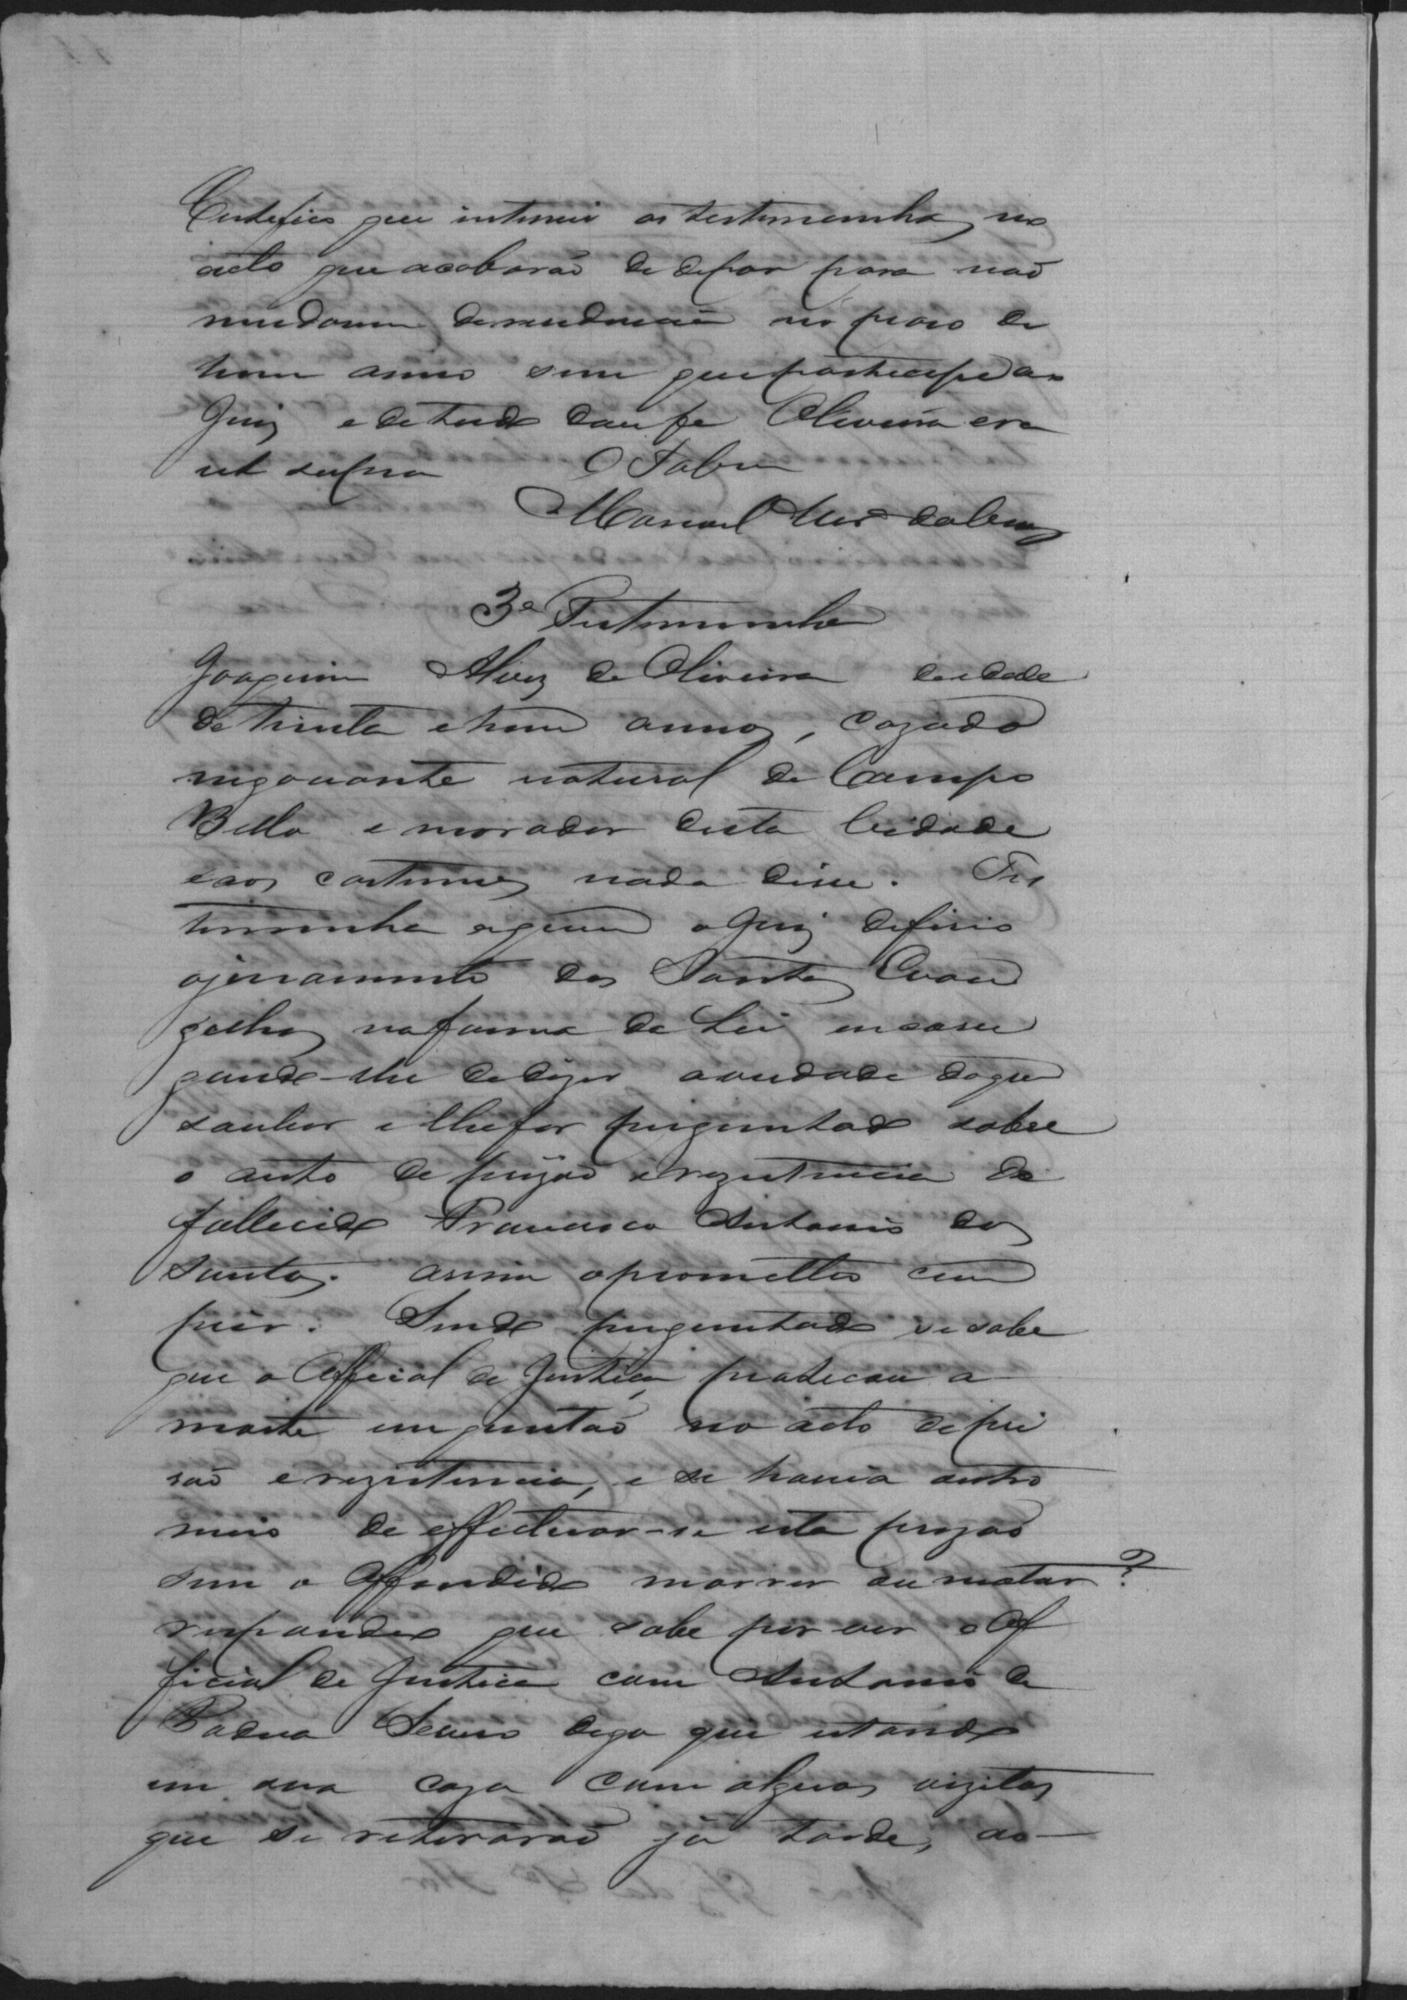 Certefico que intimei as testemunhas no
acto que acabarão de depor para não
mudarem de rezidencia no prazo de
hum anno sem que participe ao
Juiz e de tudo dou fe Oliveira era
ut supra O Tabm
Manoel
3ª Testemunha
Joaquim Alvez de Oliveira de idade
de trinta e hum annos, cazado
negociante natural de Campo
Bello e morador desta Cidade
e aos costumes nada disse. Tes
temunha a quem o Juiz defirio
o juramento dos Santos Evan
gelhos na forma da Lei encarre
gando-lhe de dizer a verdade do que
souber e lhe for perguntado sobre
o auto de prizão e rezistencia do
fallecido Francisco Antonio dos
Santos. assim o prometteo cum
prir. Sendo perguntado se sabe
que o Official de Justiça praticou a
morte em questão no acto de pri
são e rezistencia, e se havia outro
meio de effectuar-se esta prizão
sem o Offendido morrer ou matar?
respondeo que sabe por ver o Of
ficial de Justica com Antonio de
Padua Severo digo que estando
em sua caza com algumas vizitas
que se retirarão já tarde, ao